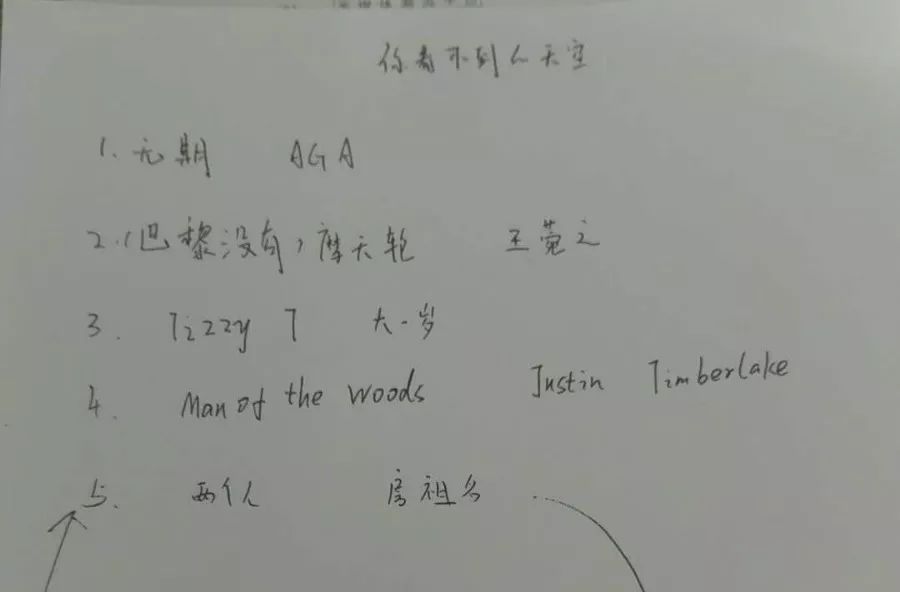 你看不到的天空
1. 无期 AGA
2. 巴黎没有,摩天轮 王菀之
3. Tizzy T 大一岁
4. Man of the woods Justin Timberlake
5. 两个人 房祖名